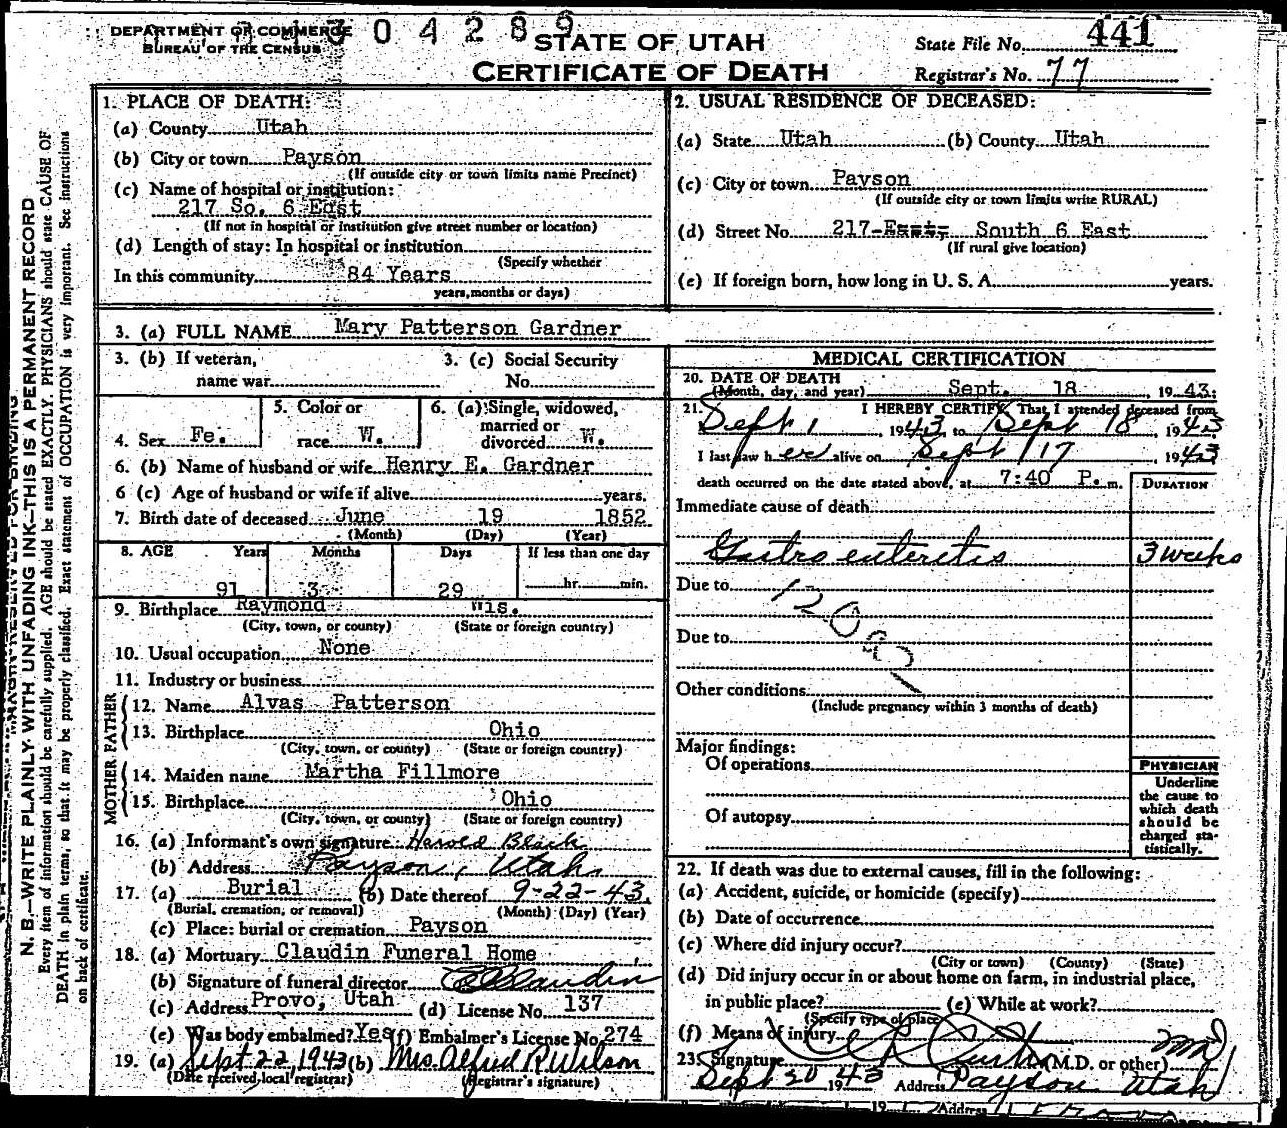 1304289
DEPARTMENT OF COMMERCE
BUREAU OF THE CENSUS
STATE OF UTAH
CERTIFICATE OF DEATH
State File No. 441
Registrar's No. 77
1. PLACE OF DEATH:
(a) County Utah
(b) City or town Payson
(If outside city or town limits name Precinct)
(c) Name of hospital or institution:
217 So. 6 East
(If not in hospital or institution give street number or location)
(d) Length of stay: In hospital or institution
(Specify whether
In this community 84 Years
years, months or days)
2. USUAL RESIDENCE OF DECEASED:
(a) State Utah (b) County Utah
(c) City or town Payson
(If outside city or town limits write RURAL)
(d) Street No. 217 South 6 East
(If rural give location)
(e) If foreign born, how long in U. S. A. years.
3. (a) FULL NAME Mary Patterson Gardner
3. (b) If veteran, name war
3. (c) Social Security No.
4. Sex Fe.
5. Color or race W.
6. (a) Single, widowed, married or divorced W.
6. (b) Name of husband or wife Henry E. Gardner
6 (c) Age of husband or wife if alive years.
7. Birth date of deceased June 19 1852
(Month) (Day) (Year)
8. AGE Years Months Days If less than one day
91 3 29 hr. min.
9. Birthplace Raymond Wis.
(City, town, or county) (State or foreign country)
10. Usual occupation None
11. Industry or business
FATHER
12. Name Alvas Patterson
13. Birthplace Ohio
(City, town, or county) (State or foreign country)
MOTHER
14. Maiden name Martha Fillmore
15. Birthplace Ohio
(City, town, or county) (State or foreign country)
16. (a) Informant's own signature Harold Black
(b) Address Payson, Utah
17. (a) Burial (b) Date thereof 9-22-43
(Burial, cremation, or removal) (Month) (Day) (Year)
(c) Place: burial or cremation Payson
18. (a) Mortuary Claudin Funeral Home
(b) Signature of funeral director Claudin
(c) Address Provo, Utah (d) License No. 137
(e) Was body embalmed? Yes (f) Embalmer's License No. 274
19. (a) Sept 22, 1943 (b) Mrs. Alfred R Wilson
(Date received local registrar) (Registrar's signature)
MEDICAL CERTIFICATION
20. DATE OF DEATH
(Month, day, and year) Sept. 18 1943.
21. I HEREBY CERTIFY, That I attended deceased from
Sept 1, 1943, to Sept 18, 1943
I last saw her alive on Sept 17, 1943
death occurred on the date stated above, at 7:40 P. m.
DURATION
Immediate cause of death
Gastro enteritis 3 weeks
Due to
Due to
Other conditions
(Include pregnancy within 3 months of death)
Major findings:
Of operations
Of autopsy
PHYSICIAN
Underline
the cause to
which death
should be
charged sta-
tistically.
22. If death was due to external causes, fill in the following:
(a) Accident, suicide, or homicide (specify)
(b) Date of occurrence
(c) Where did injury occur?
(City or town) (County) (State)
(d) Did injury occur in or about home on farm, in industrial place,
in public place? (e) While at work?
(Specify type of place
(f) Means of injury
23. Signature (M.D. or other) MD
Sept 20 1943 Address Payson Utah
N. B.—WRITE PLAINLY WITH UNFADING INK—THIS IS A PERMANENT RECORD
Every item of information should be carefully supplied. AGE should be stated EXACTLY. PHYSICIANS should state CAUSE OF
DEATH in plain terms, so that it may be properly classified. Exact statement of OCCUPATION is very important. See instructions
on back of certificate.